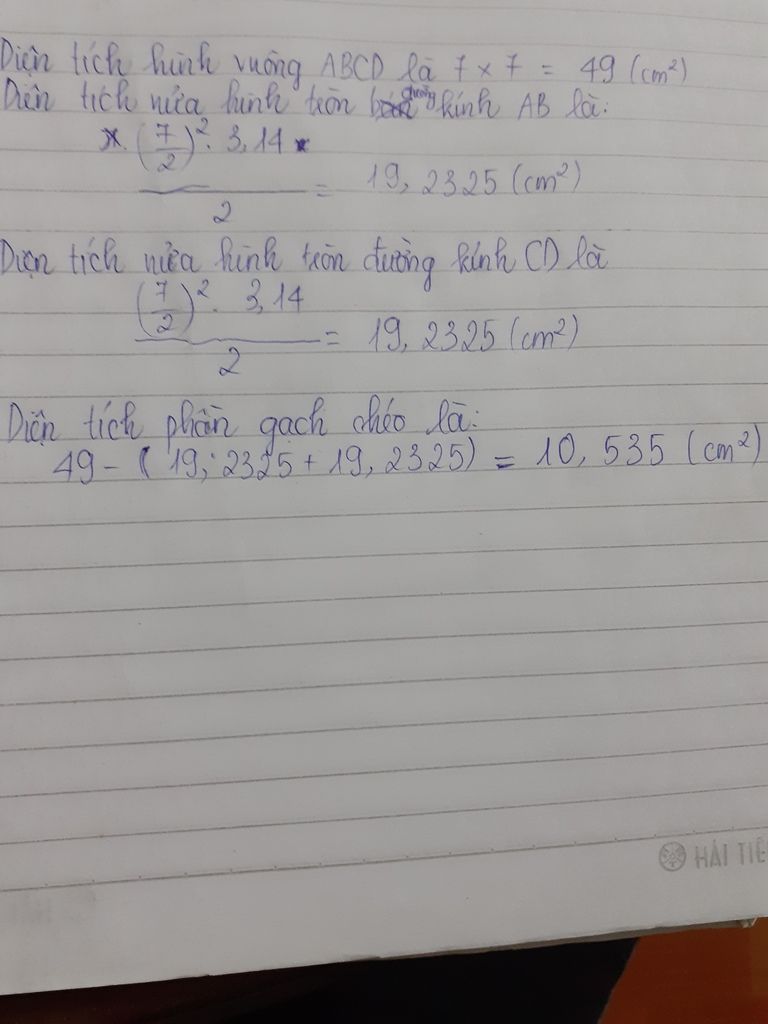 Diện tích hình vuông ABCD là 7 x 7 = 49 (cm²)
Diện tích nửa hình tròn đường kính AB là:
(7/2)². 3,14
/ 2 = 19,2325 (cm²)
Diện tích nửa hình tròn đường kính CD là
(7/2)². 3,14
/ 2 = 19,2325 (cm²)
Diện tích phần gạch chéo là:
49 - (19,2325 + 19,2325) = 10,535 (cm²)
HẢI TIẾ